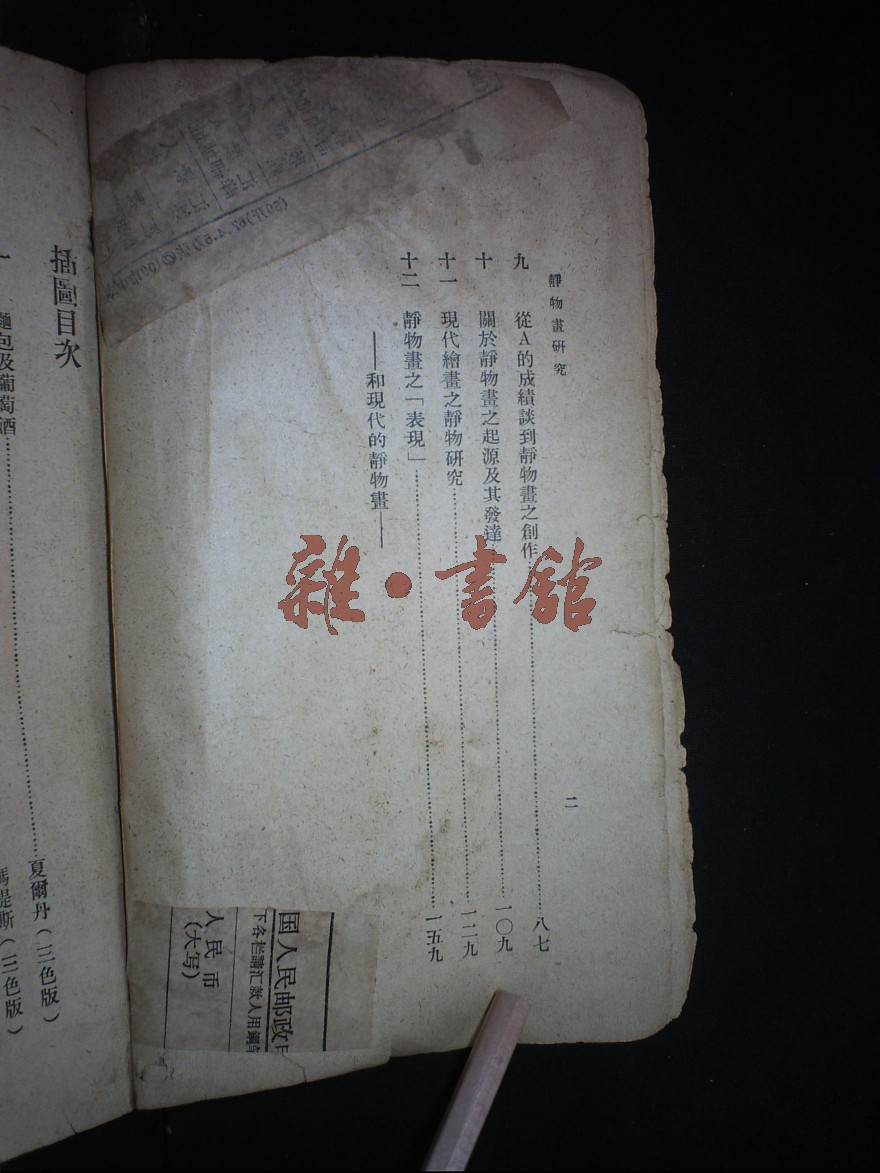 靜物畫研究
二
九 從A的成績談到靜物畫之創作……八七
十 關於靜物畫之起源及其發達……一〇九
十一 現代繪畫之靜物研究……一二九
十二 靜物畫之「表現」……一五九
——和現代的靜物畫——
雜·書舘
国人民邮政
下各栏請汇款人用鋼
人民币
(大写)
插圖目次
一 麵包及葡萄酒……夏爾丹(三色版)
瑪提斯(三色版)